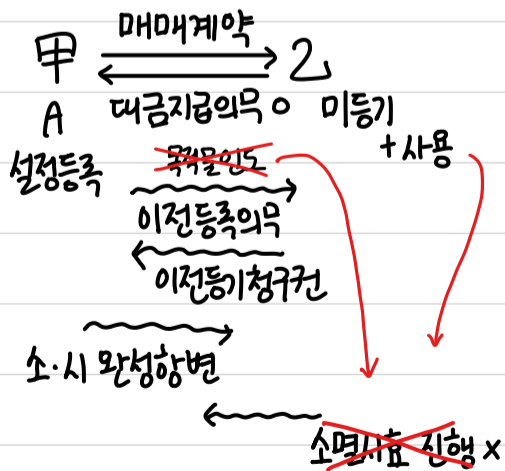 매매계약
甲 乙
A 대금지급의무 O 미등기
+사용
설정등록 목적물인도
이전등록의무
이전등기청구권
소·시 완성항변
소멸시효 진행 x